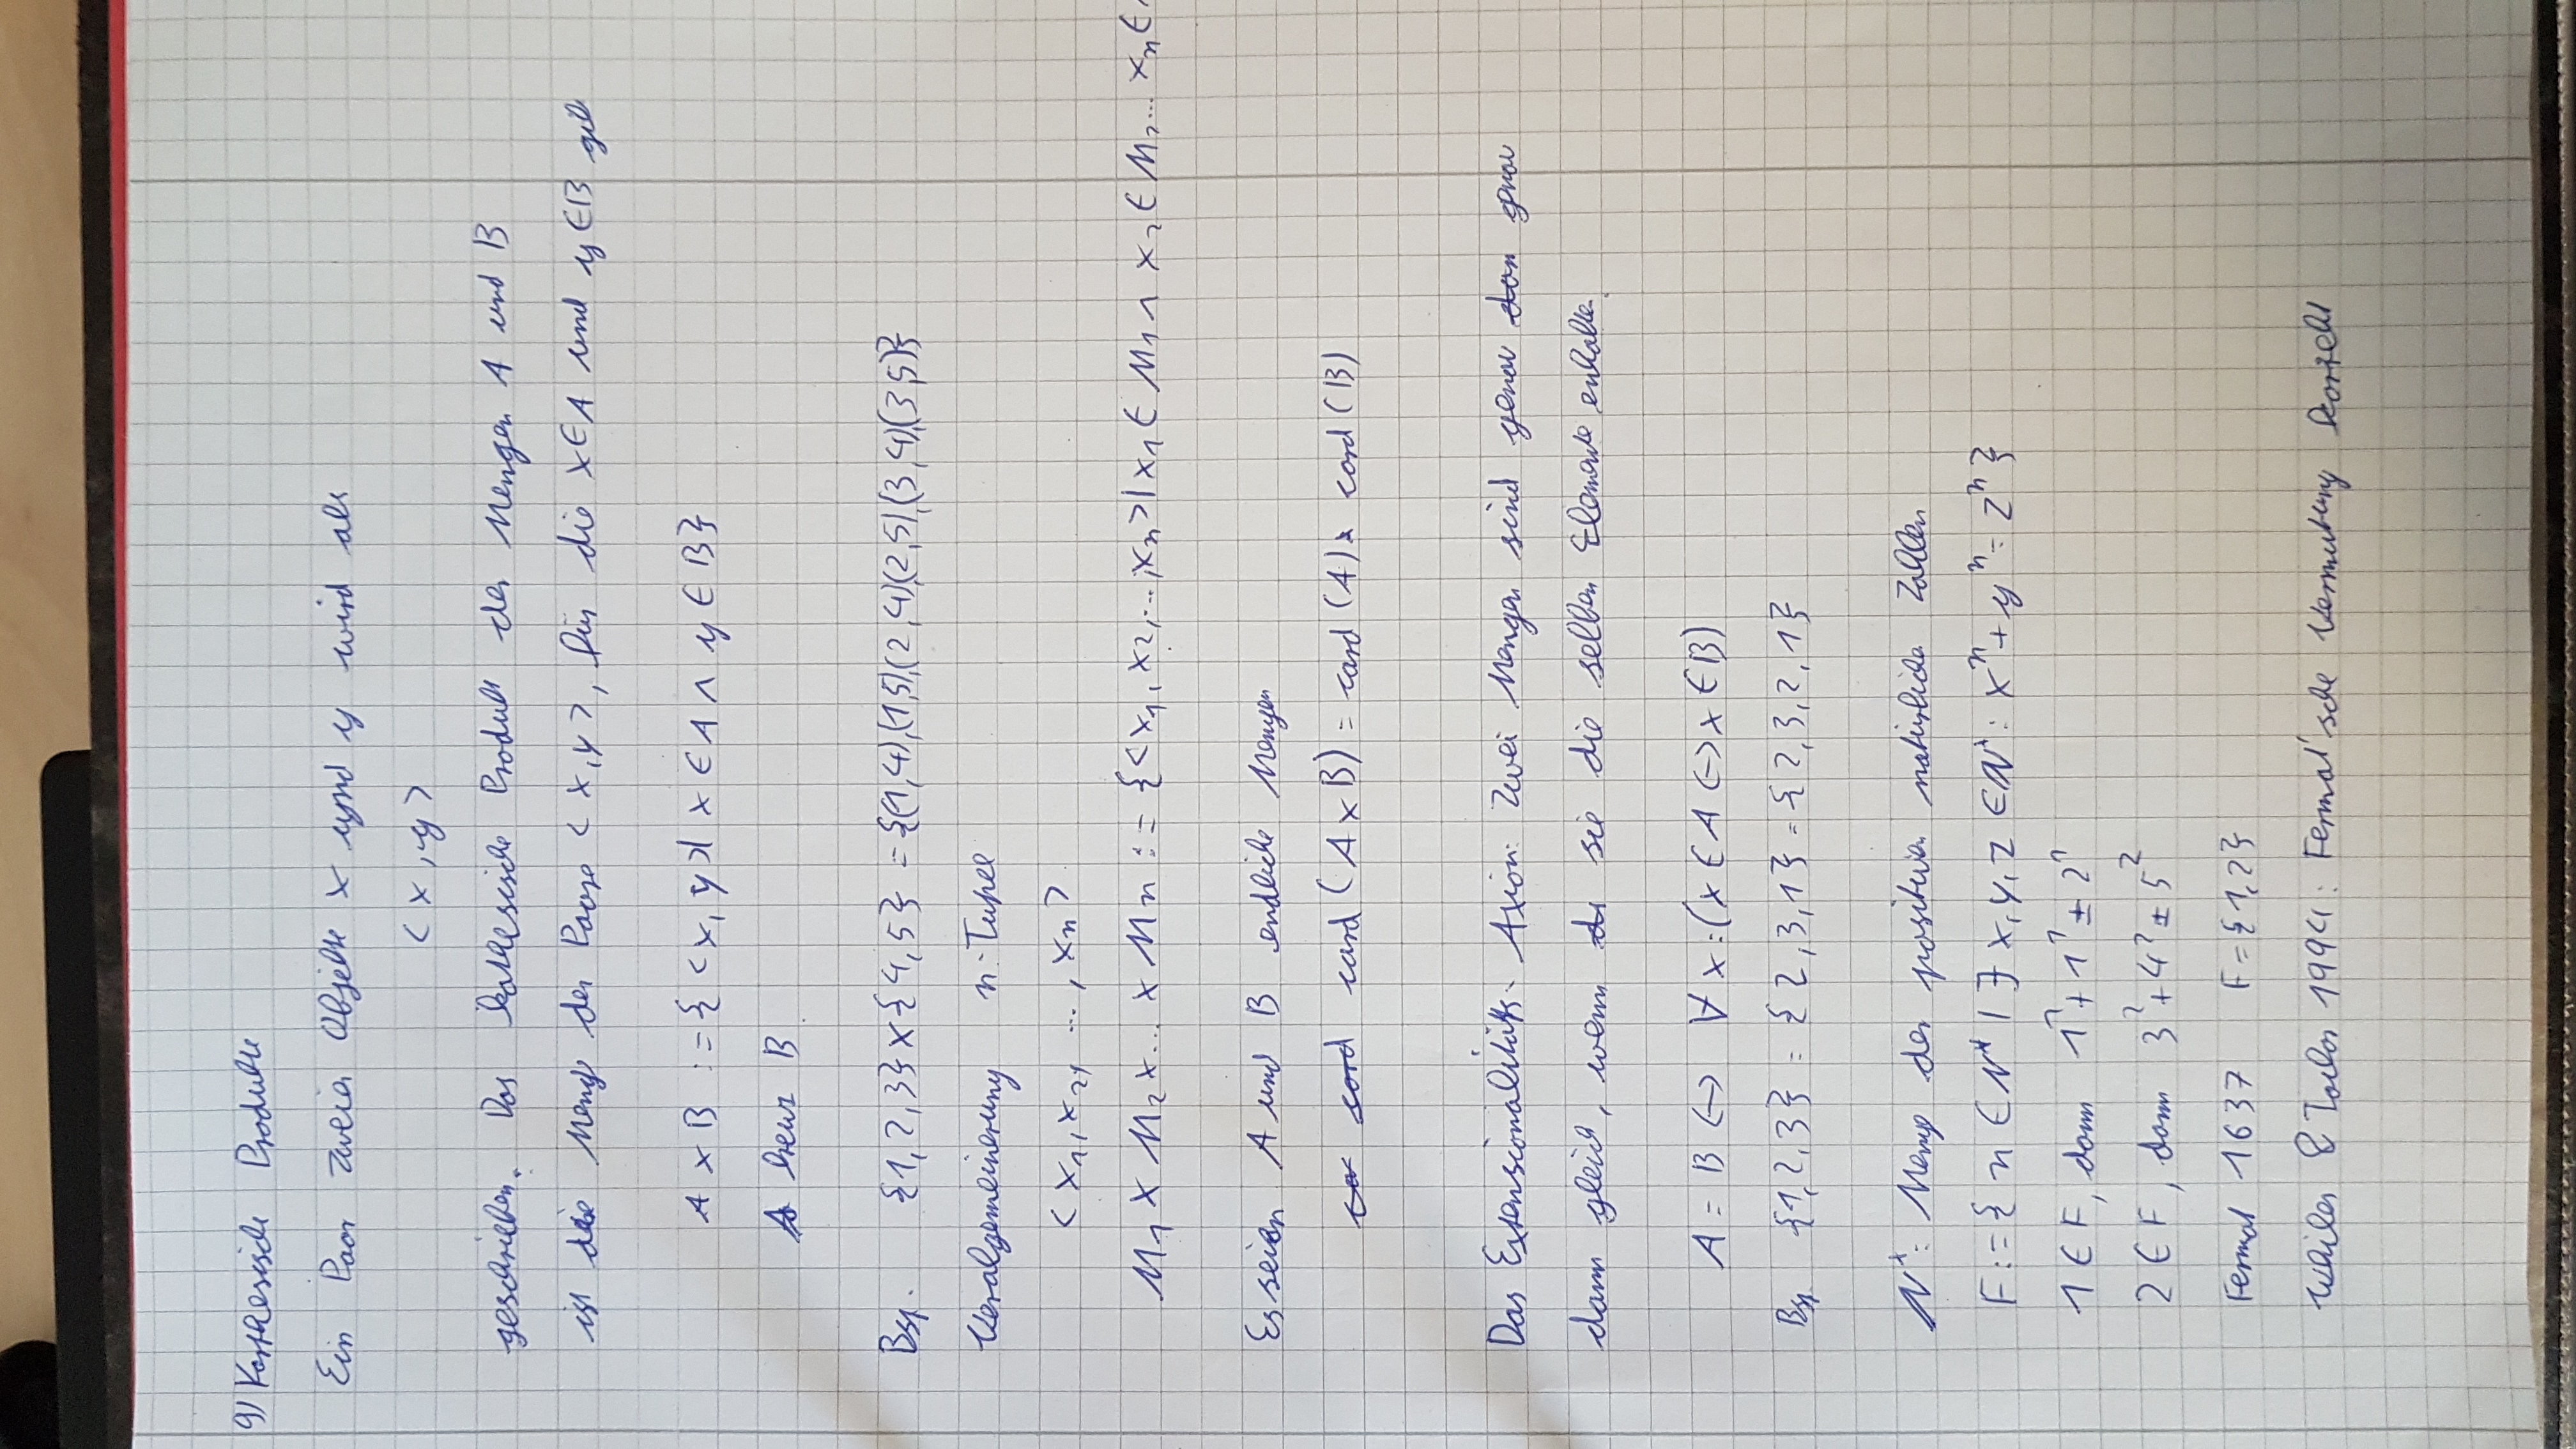 9) Karthesische Produkte
Ein Paar zweier Objekte x und y wird als
< x , y >
geschrieben. Das kathesische Produkt der Mengen A und B
ist die Menge der Paare < x,y >, für die x∈A und y∈B gilt
A × B := { <x, y>| x ∈ A ∧ y ∈ B}
A kreuz B
Bsp. {1,2,3} × {4,5} = {(1,4),(1,5),(2,4),(2,5),(3,4),(3,5)}
Veralgemeinerung n-Tupel
< x₁, x₂, ..., xn >
M₁ × M₂ × ... × Mn := {<x₁, x₂, ..., xn >| x₁ ∈ M₁ ∧ x₂ ∈ M₂ ... xn ∈
Es seien A und B endliche Mengen
card (A × B) = card (A) · card (B)
Das Extensionalitäts-Axiom: Zwei Mengen sind genau genau
dann gleich, wenn sie die selben Elemente enhalten.
A = B ↔ ∀ x : (x ∈ A ↔ x ∈ B)
Bsp. {1,2,3} = {2,3,1} = {2,3,2,1}
N*: Menge der positiven natürliche Zahlen
F := { n ∈ N* | ∃ x, y, z ∈ N* : xⁿ + yⁿ = zⁿ }
1 ∈ F, dann 1¹ + 1¹ = 2¹
2 ∈ F, dann 3² + 4² = 5²
Fermat 1637 F = {1,2}
& 1994: Fermat'sche Vermutung korrekt